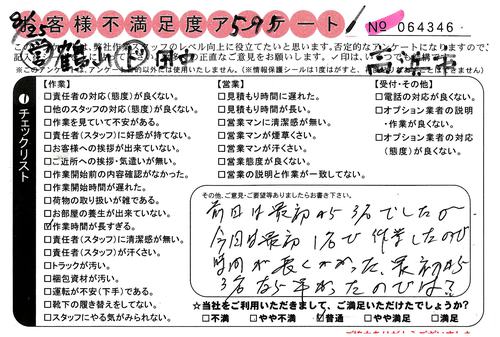 8/25
お客様不満足度アンケート
595
No 064346
営 鶴
田中
浜市
【作業】
□責任者の対応(態度)が良くない。
□他のスタッフの対応(態度)が良くない。
□作業を見ていて不安がある。
□責任者(スタッフ)に好感が持てない。
□お客様への挨拶が出来ていない。
□ご近所への挨拶・気遣いが無い。
□作業開始前の内容確認がなかった。
□作業開始時間が遅れた。
□荷物の取り扱いが雑である。
□お部屋の養生が出来ていない。
☑作業時間が長すぎる。
□責任者(スタッフ)に清潔感が無い。
□責任者(スタッフ)が汗くさい。
□トラックが汚い。
□梱包資材が汚い。
□運転が不安(下手)である。
□靴下の履き替えをしてない。
□スタッフにやる気がみられない。
【営業】
□見積もり時間に遅れた。
□見積もり時間が長い。
□営業マンに清潔感が無い。
□営業マンが煙草くさい。
□営業マンが汗くさい。
□営業態度が良くない。
□営業の説明と作業が一致してない。
【受付・その他】
□電話の対応が良くない。
□オプション業者の説明
・作業が良くない。
□オプション業者の対応
(態度)が良くない。
チェックリスト
その他、ご意見・ご要望等ありましたらお書き下さい。
前回は最初から3名でしたの
今回は最初1名で作業したので
時間が長くかかった、最初から
3名なら早かったのでは?
☆当社をご利用いただきまして、ご満足いただけたでしょうか?
□不満 □やや不満 ☑普通 □やや満足 □満足